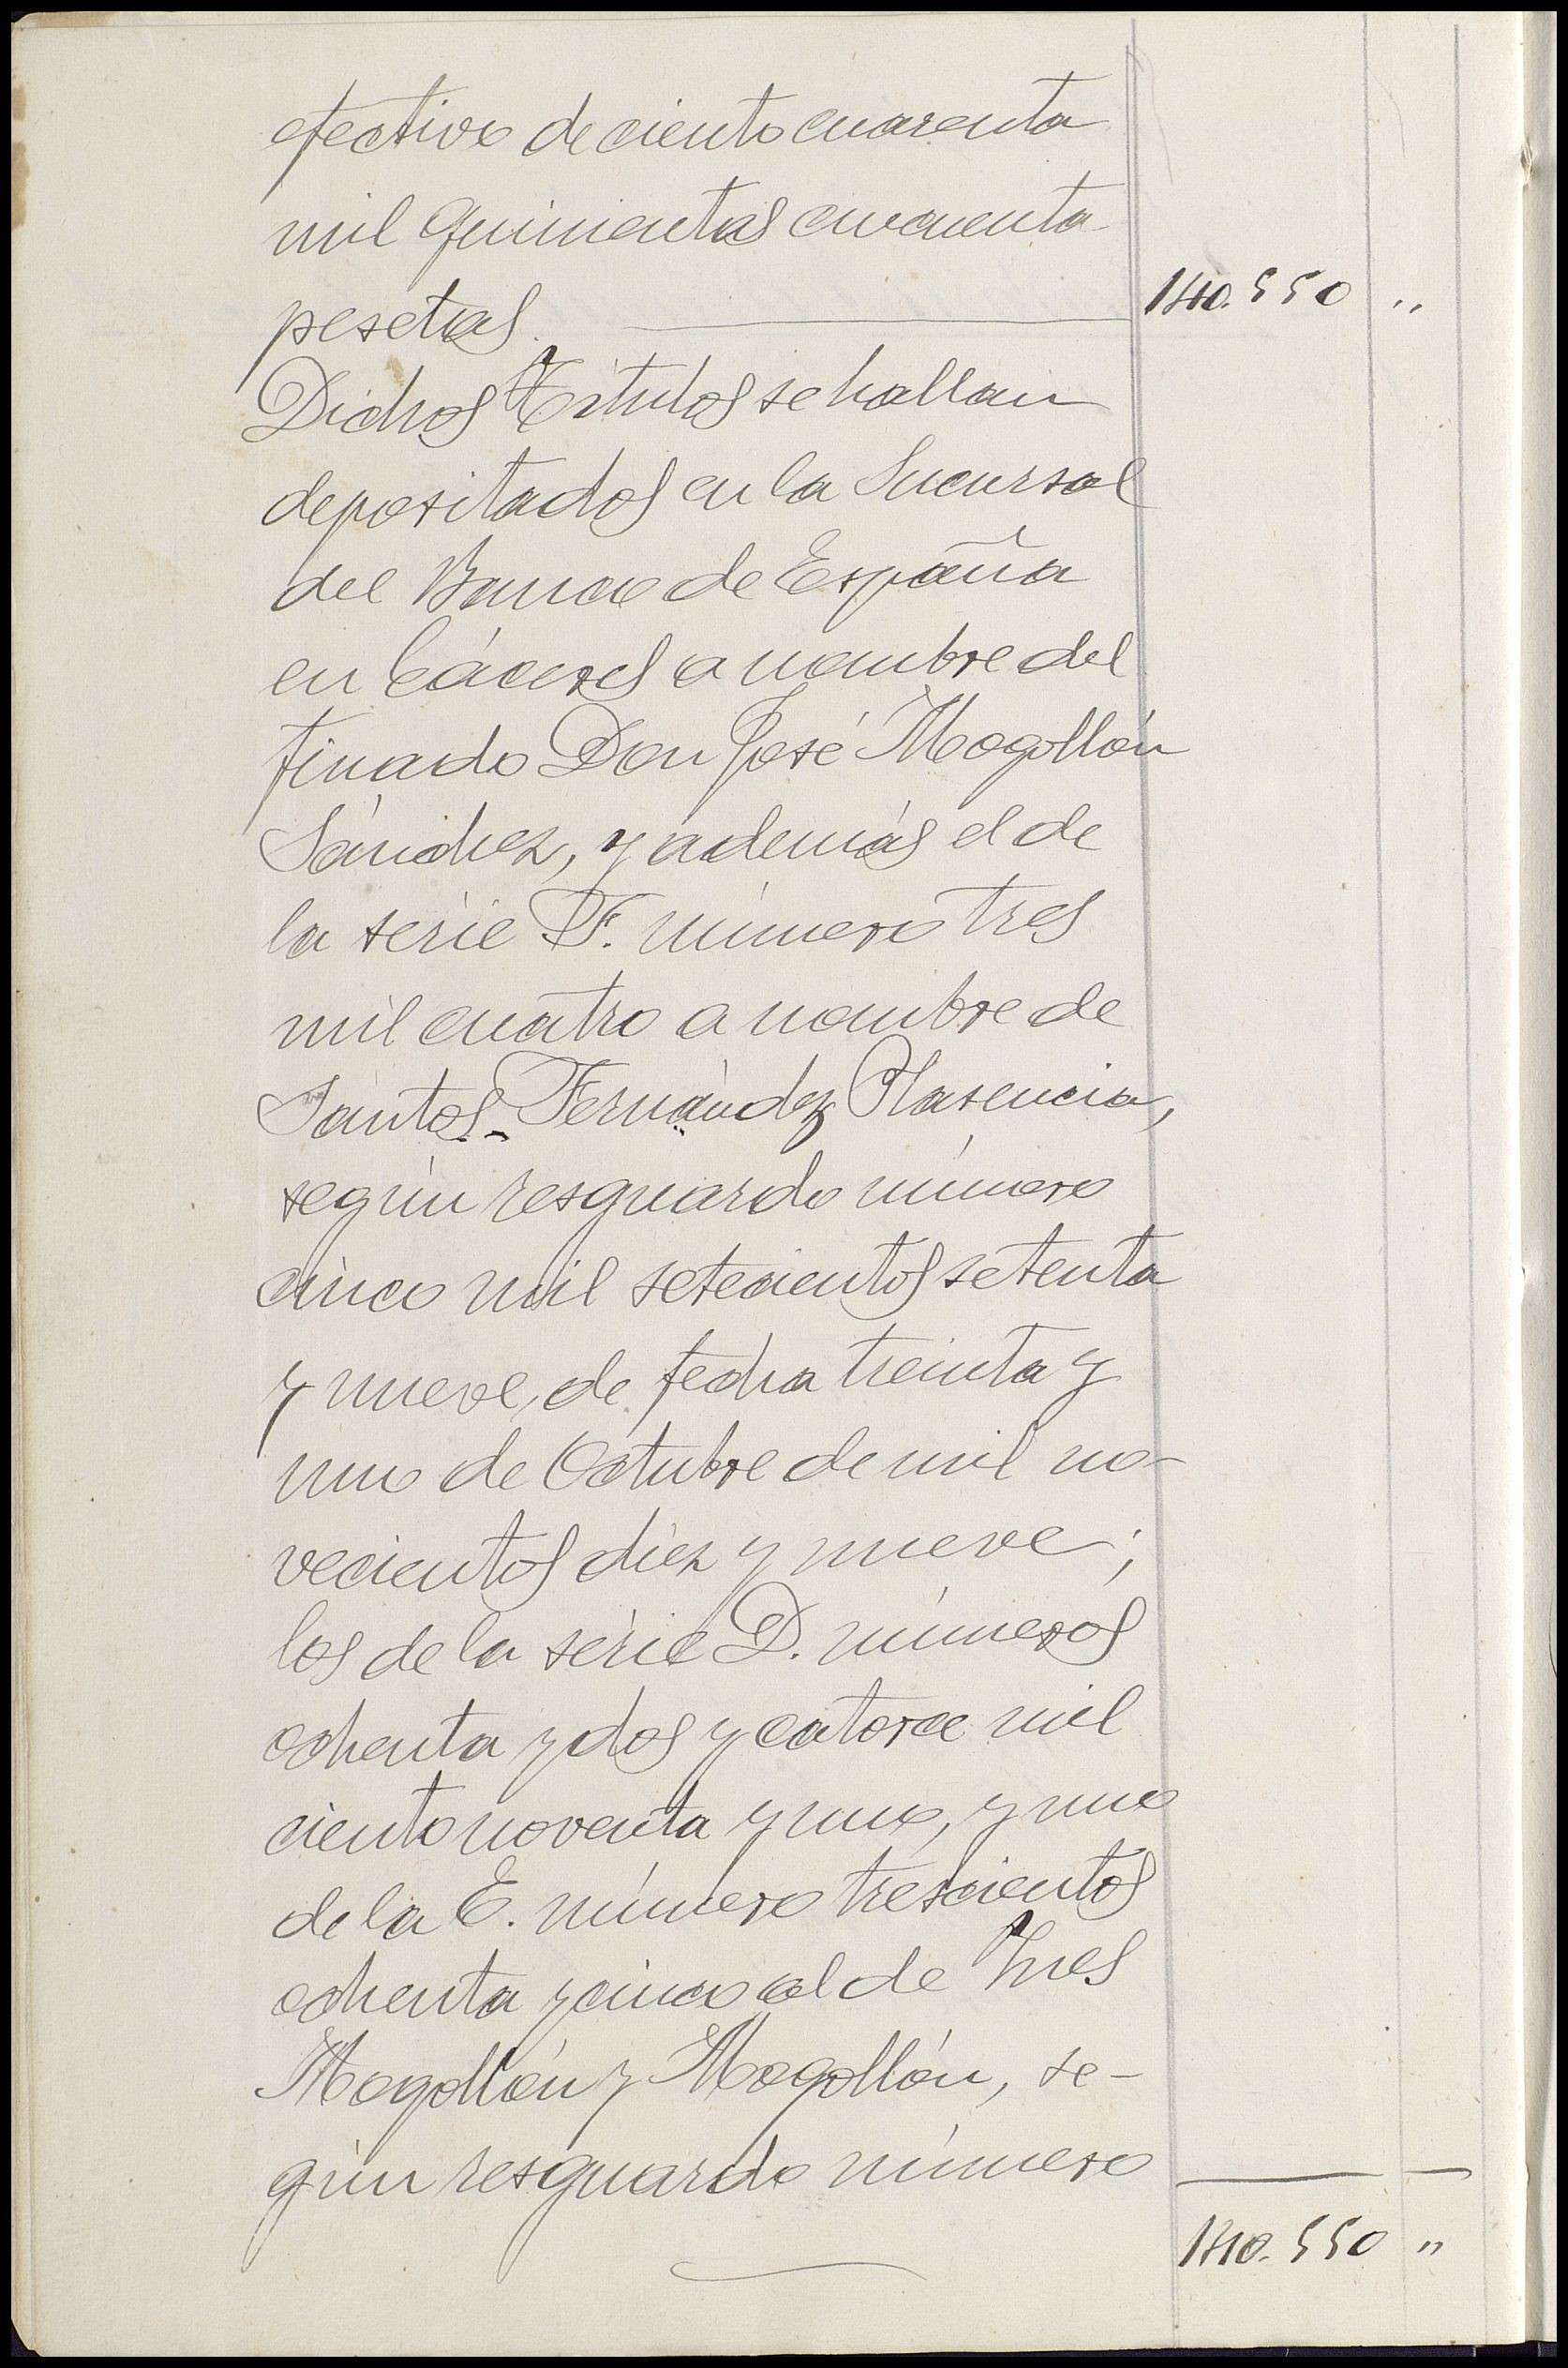 efectivo de ciento cuarenta
mil quinientas cincuenta
pesetas. 140.550 "
Dichos Titulos se hallan
depositados en la Sucursal
del Banco de España
en Cáceres a nombre del
finado Don José Mogollón
Sánchez, y además el de
la série F. número tres
mil cuatro a nombre de
Santos Fernández Plasencia,
según resguardo número
cinco mil setecientos setenta
y nueve, de fecha treinta y
uno de Octubre de mil no-
vecientos diez y nueve;
los de la série D. números
ochenta y dos y catorce mil
ciento noventa y uno, y uno
de la E. número trescientos
ochenta y cinco al de Ines
Mogollón y Mogollón, se-
gún resguardo número
140.550 "